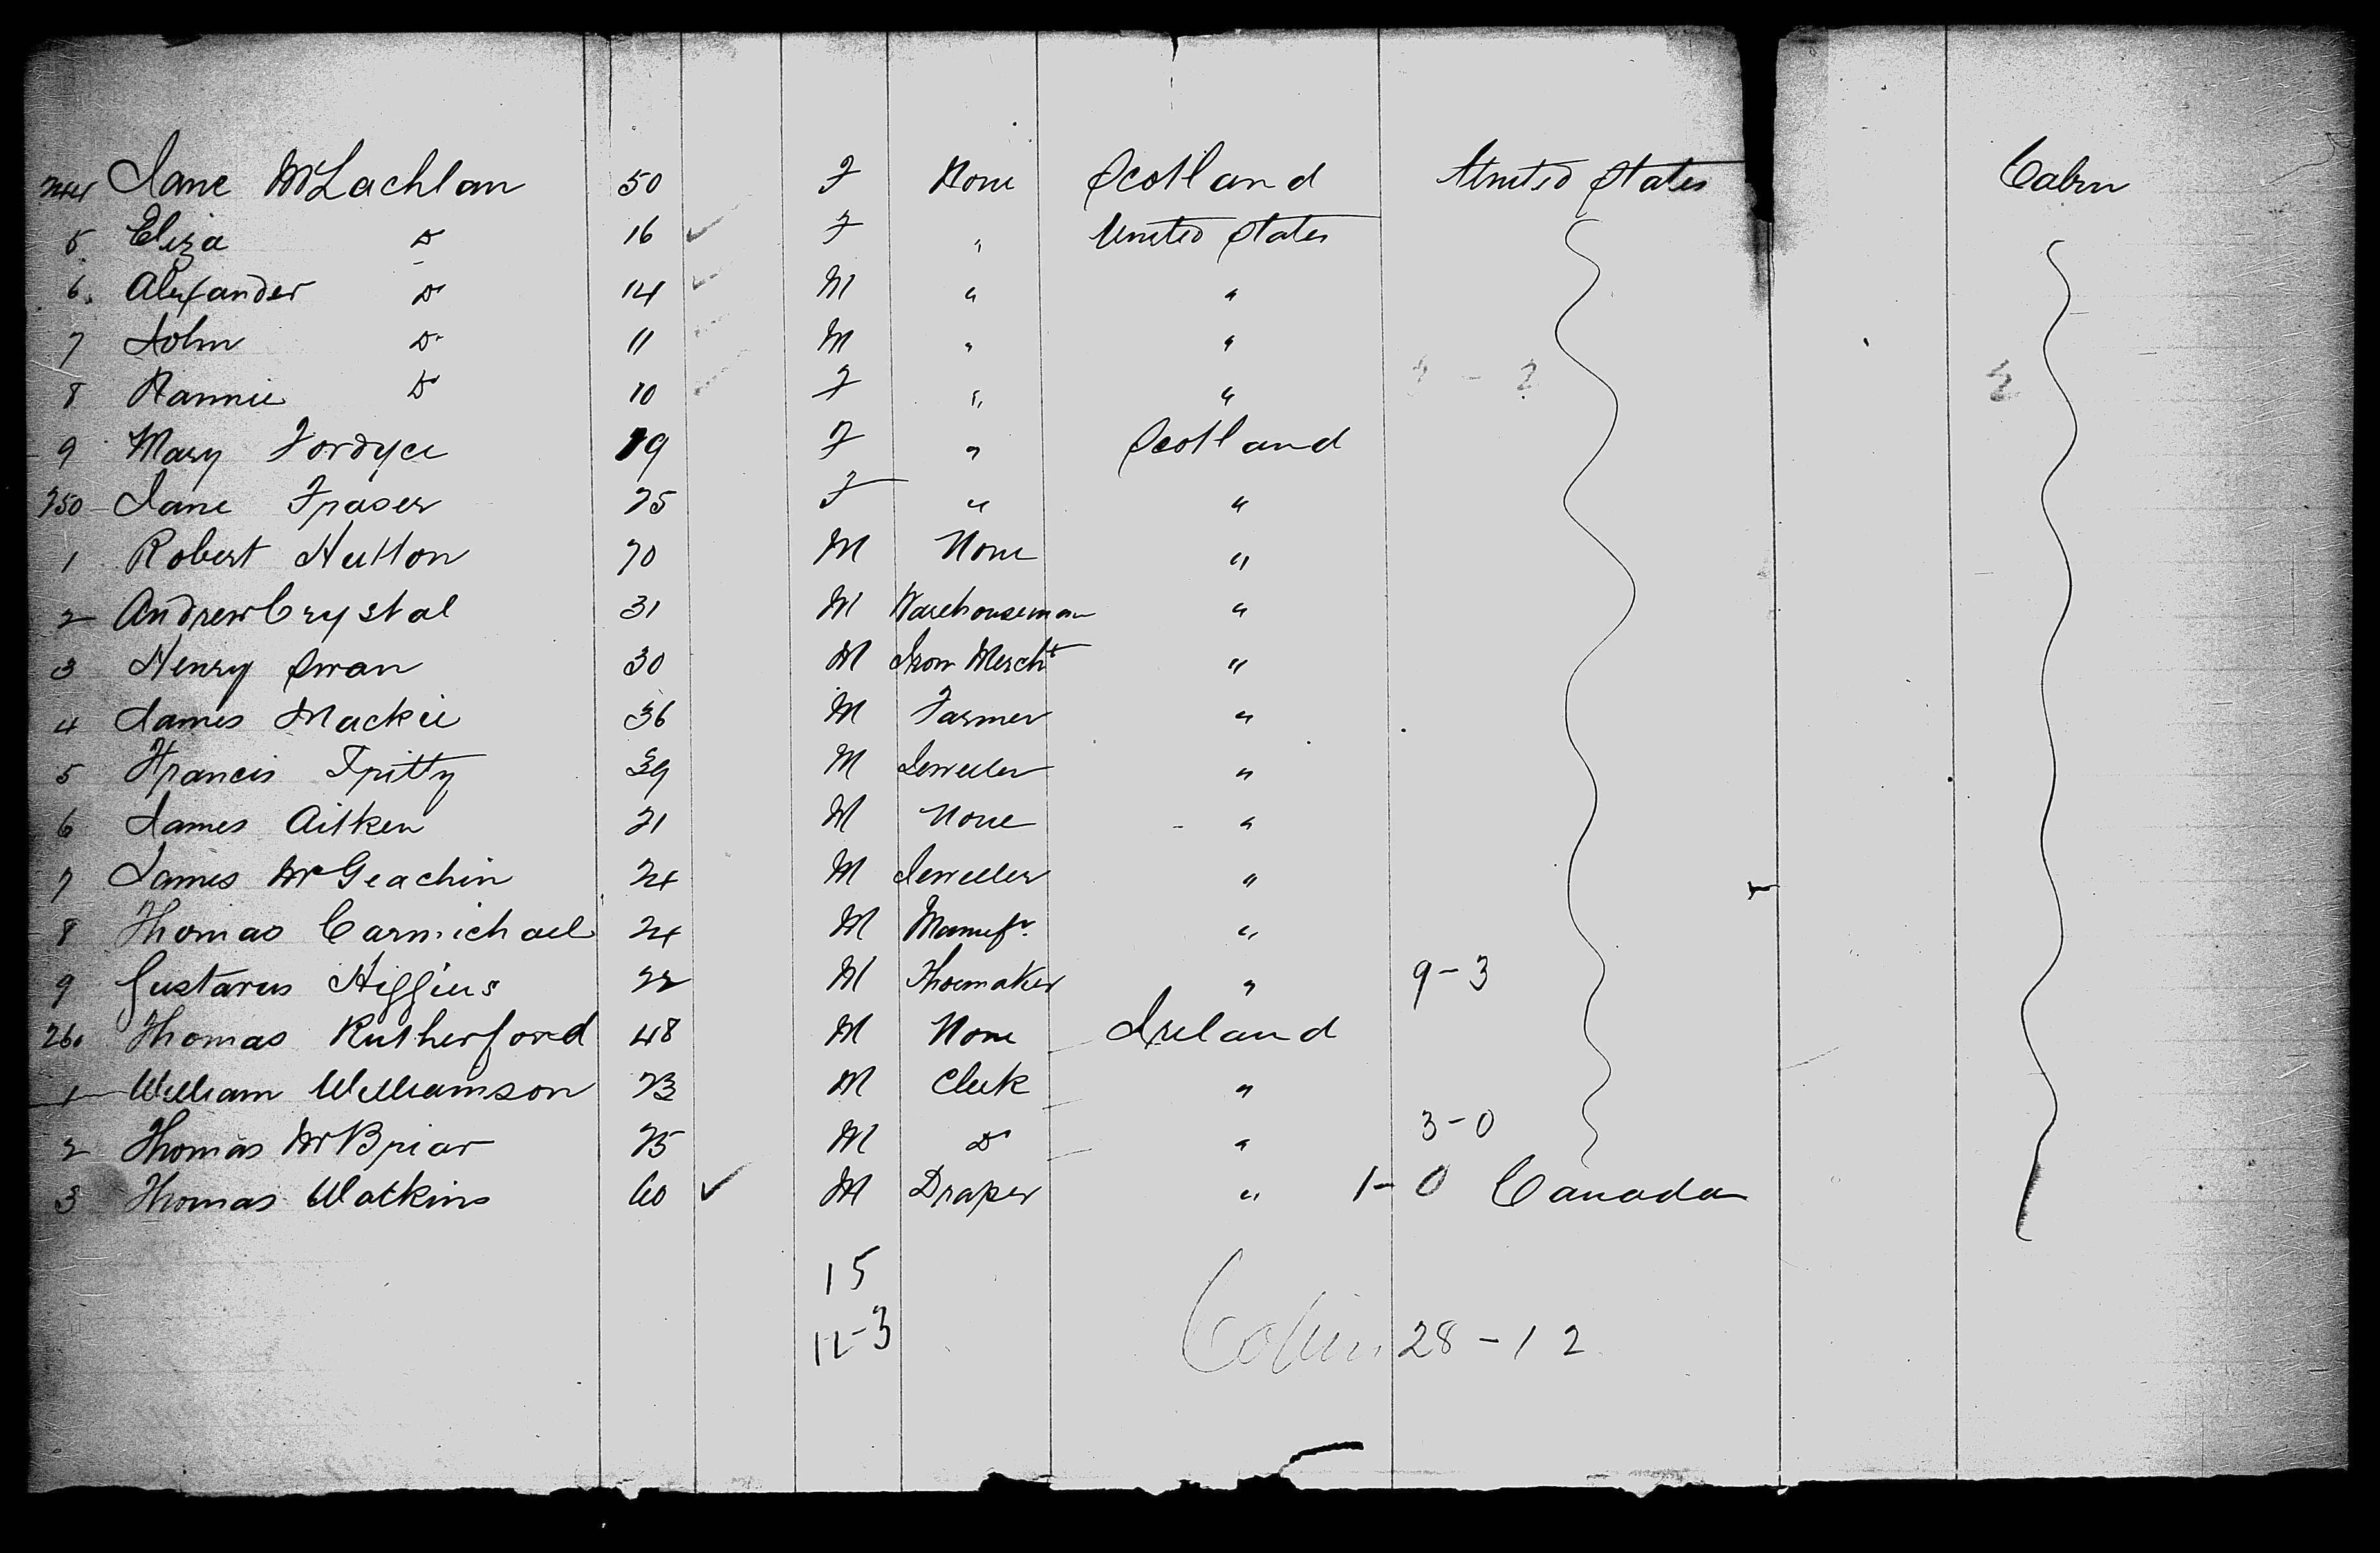 244 Jane McLachlan 50 F None Scotland United States Cabin
5 Eliza Do 16 ✓ F " United States
6 Alexander Do 14 ✓ M " "
7 John Do 11 M " "
8 Nannie Do 10 F " "
9 Mary Fordyce 19 F " Scotland
250 Jane Fraser 25 F " "
1 Robert Hutton 20 M None "
2 Andrew Crystal 31 M Warehouseman "
3 Henry Swan 30 M Iron Mercht "
4 James Mackie 36 M Farmer "
5 Francis Fritty 39 M Jeweller "
6 James Aitken 21 M None "
7 James McGeachin 24 M Jeweller "
8 Thomas Carmichael 24 M Manufr. "
9 Gustavus Higgins 22 M Shoemaker " 9-3
260 Thomas Rutherford 48 M None Ireland
1 William Williamson 23 M Clerk "
2 Thomas McBriar 25 M Do " 3-0
3 Thomas Watkins 60 ✓ M Draper " 1-0 Canada
15
12-3 Cabin 28-12